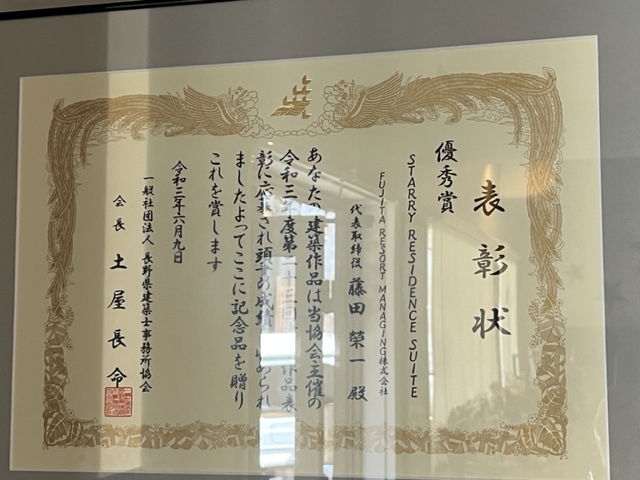 表彰状
優秀賞
STARRY RESIDENCE SUITE
FUJITA RESORT MANAGING株式会社
代表取締役 藤田榮一 殿
あなたの建築作品は当協会主催の
令和三年度第二十三回 作品表
彰に応募され頭書の成績 められ
ましたよってここに記念品を贈り
これを賞します
令和三年六月九日
一般社団法人 長野県建築士事務所協会
会長 土屋長命